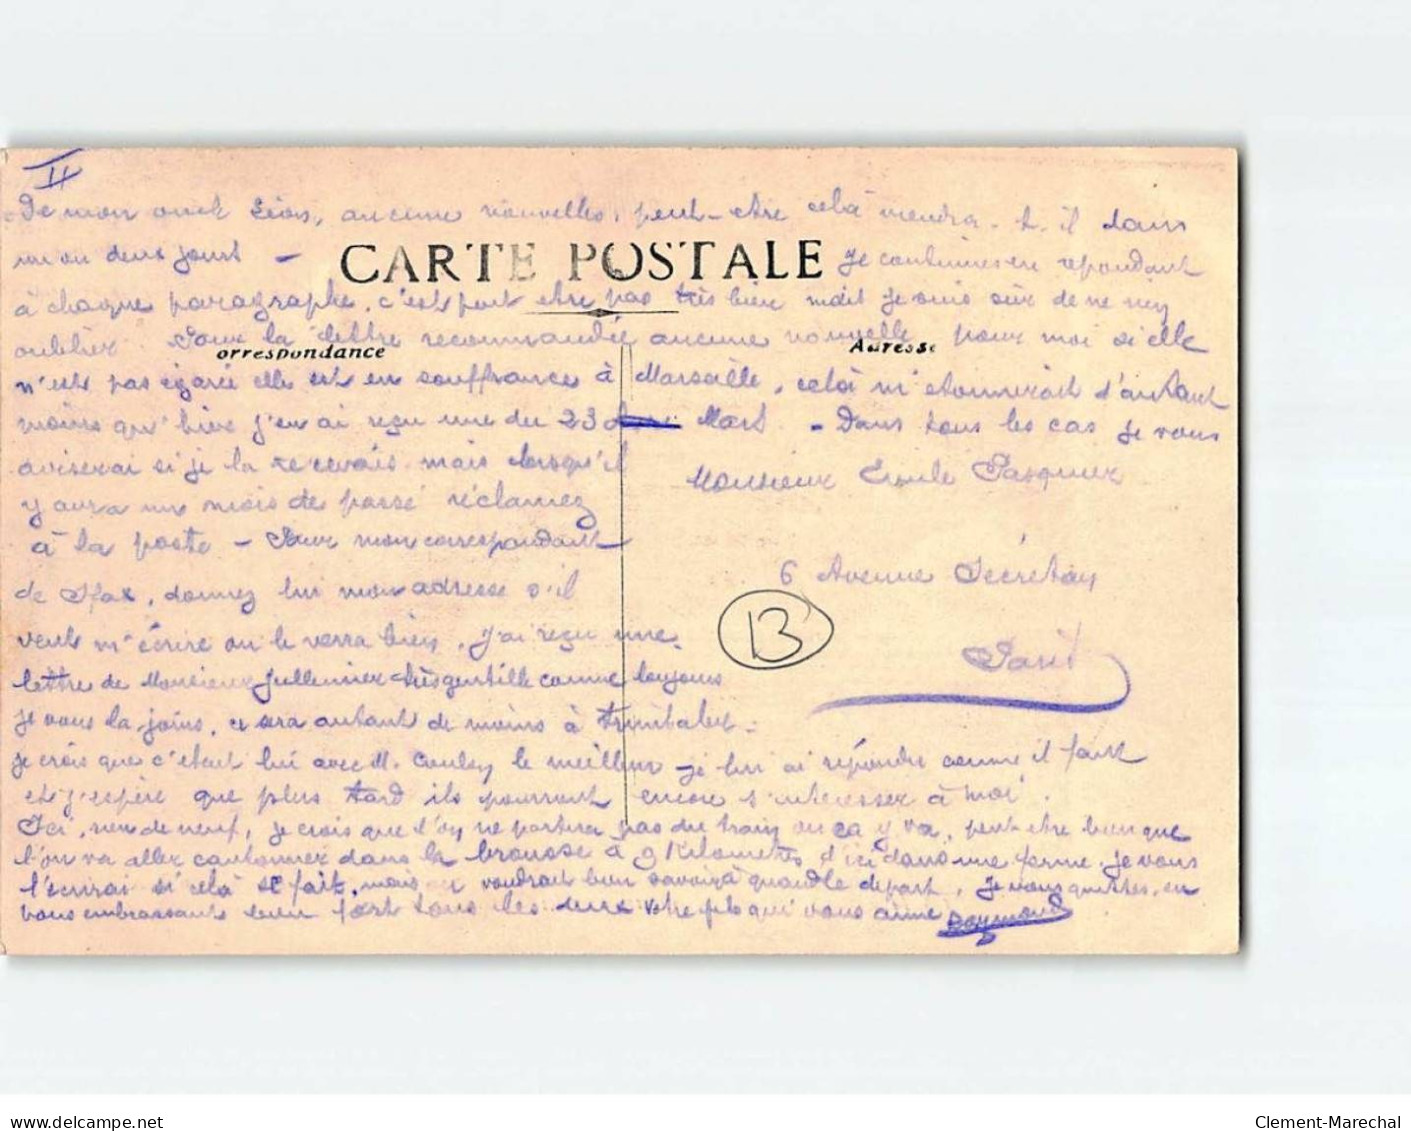 II
De mon oncle Léon, aucune nouvelles, peut-etre celà viendra-t-il dans
un ou deux jours -
CARTE POSTALE
Je continue en repondant
à chaque paragraphe, c'est peut etre pas très bien mais je suis sûr de ne rien
oublier. Pour la lettre recommandée aucune nouvelle, pour moi si elle
orrespondance
Adresse
n'est pas égarée elle est en souffrance à Marseille, celà m'etonnerait d'autant
moins qu'hier j'en ai reçu une du 23 Mars. - Dans tous les cas je vous
aviserai si je la recevais mais lorsqu'il
y aura un mois de passé réclamez
à la poste - Pour mon correspondant
de Sfax, donnez lui mon adresse s'il
veut m'écrire on le verra bien. J'ai reçu une
lettre de Monsieur Jullemier très gentille comme toujours
je vous la joins, ce sera autant de moins à trimbaler -
Je crois que c'etait lui avec M. le meilleur je lui ai répondu comme il faut
et j'espère que plus tard ils pourront encore s'interesser à moi.
Ici, rien de neuf, je crois que l'on ne partira pas du train ou ça y va, peut-etre bien que
l'on va aller cantonner dans la brousse à 9 Kilomètres d'ici dans une ferme. Je vous
l'écrirai si celà se fait, mais on voudrait bien savoir à quand le depart. Je vous quittes, en
vous embrassant bien fort tous les deux votre fils qui vous aime Raymond
Monsieur Emile Pasquier
6 Avenue Secrétan
Paris
13
www.delcampe.net
Clement-Marechal